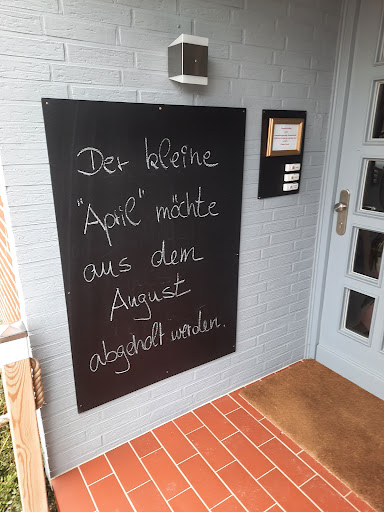 Der kleine
"April" möchte
aus dem
August
abgeholt werden.